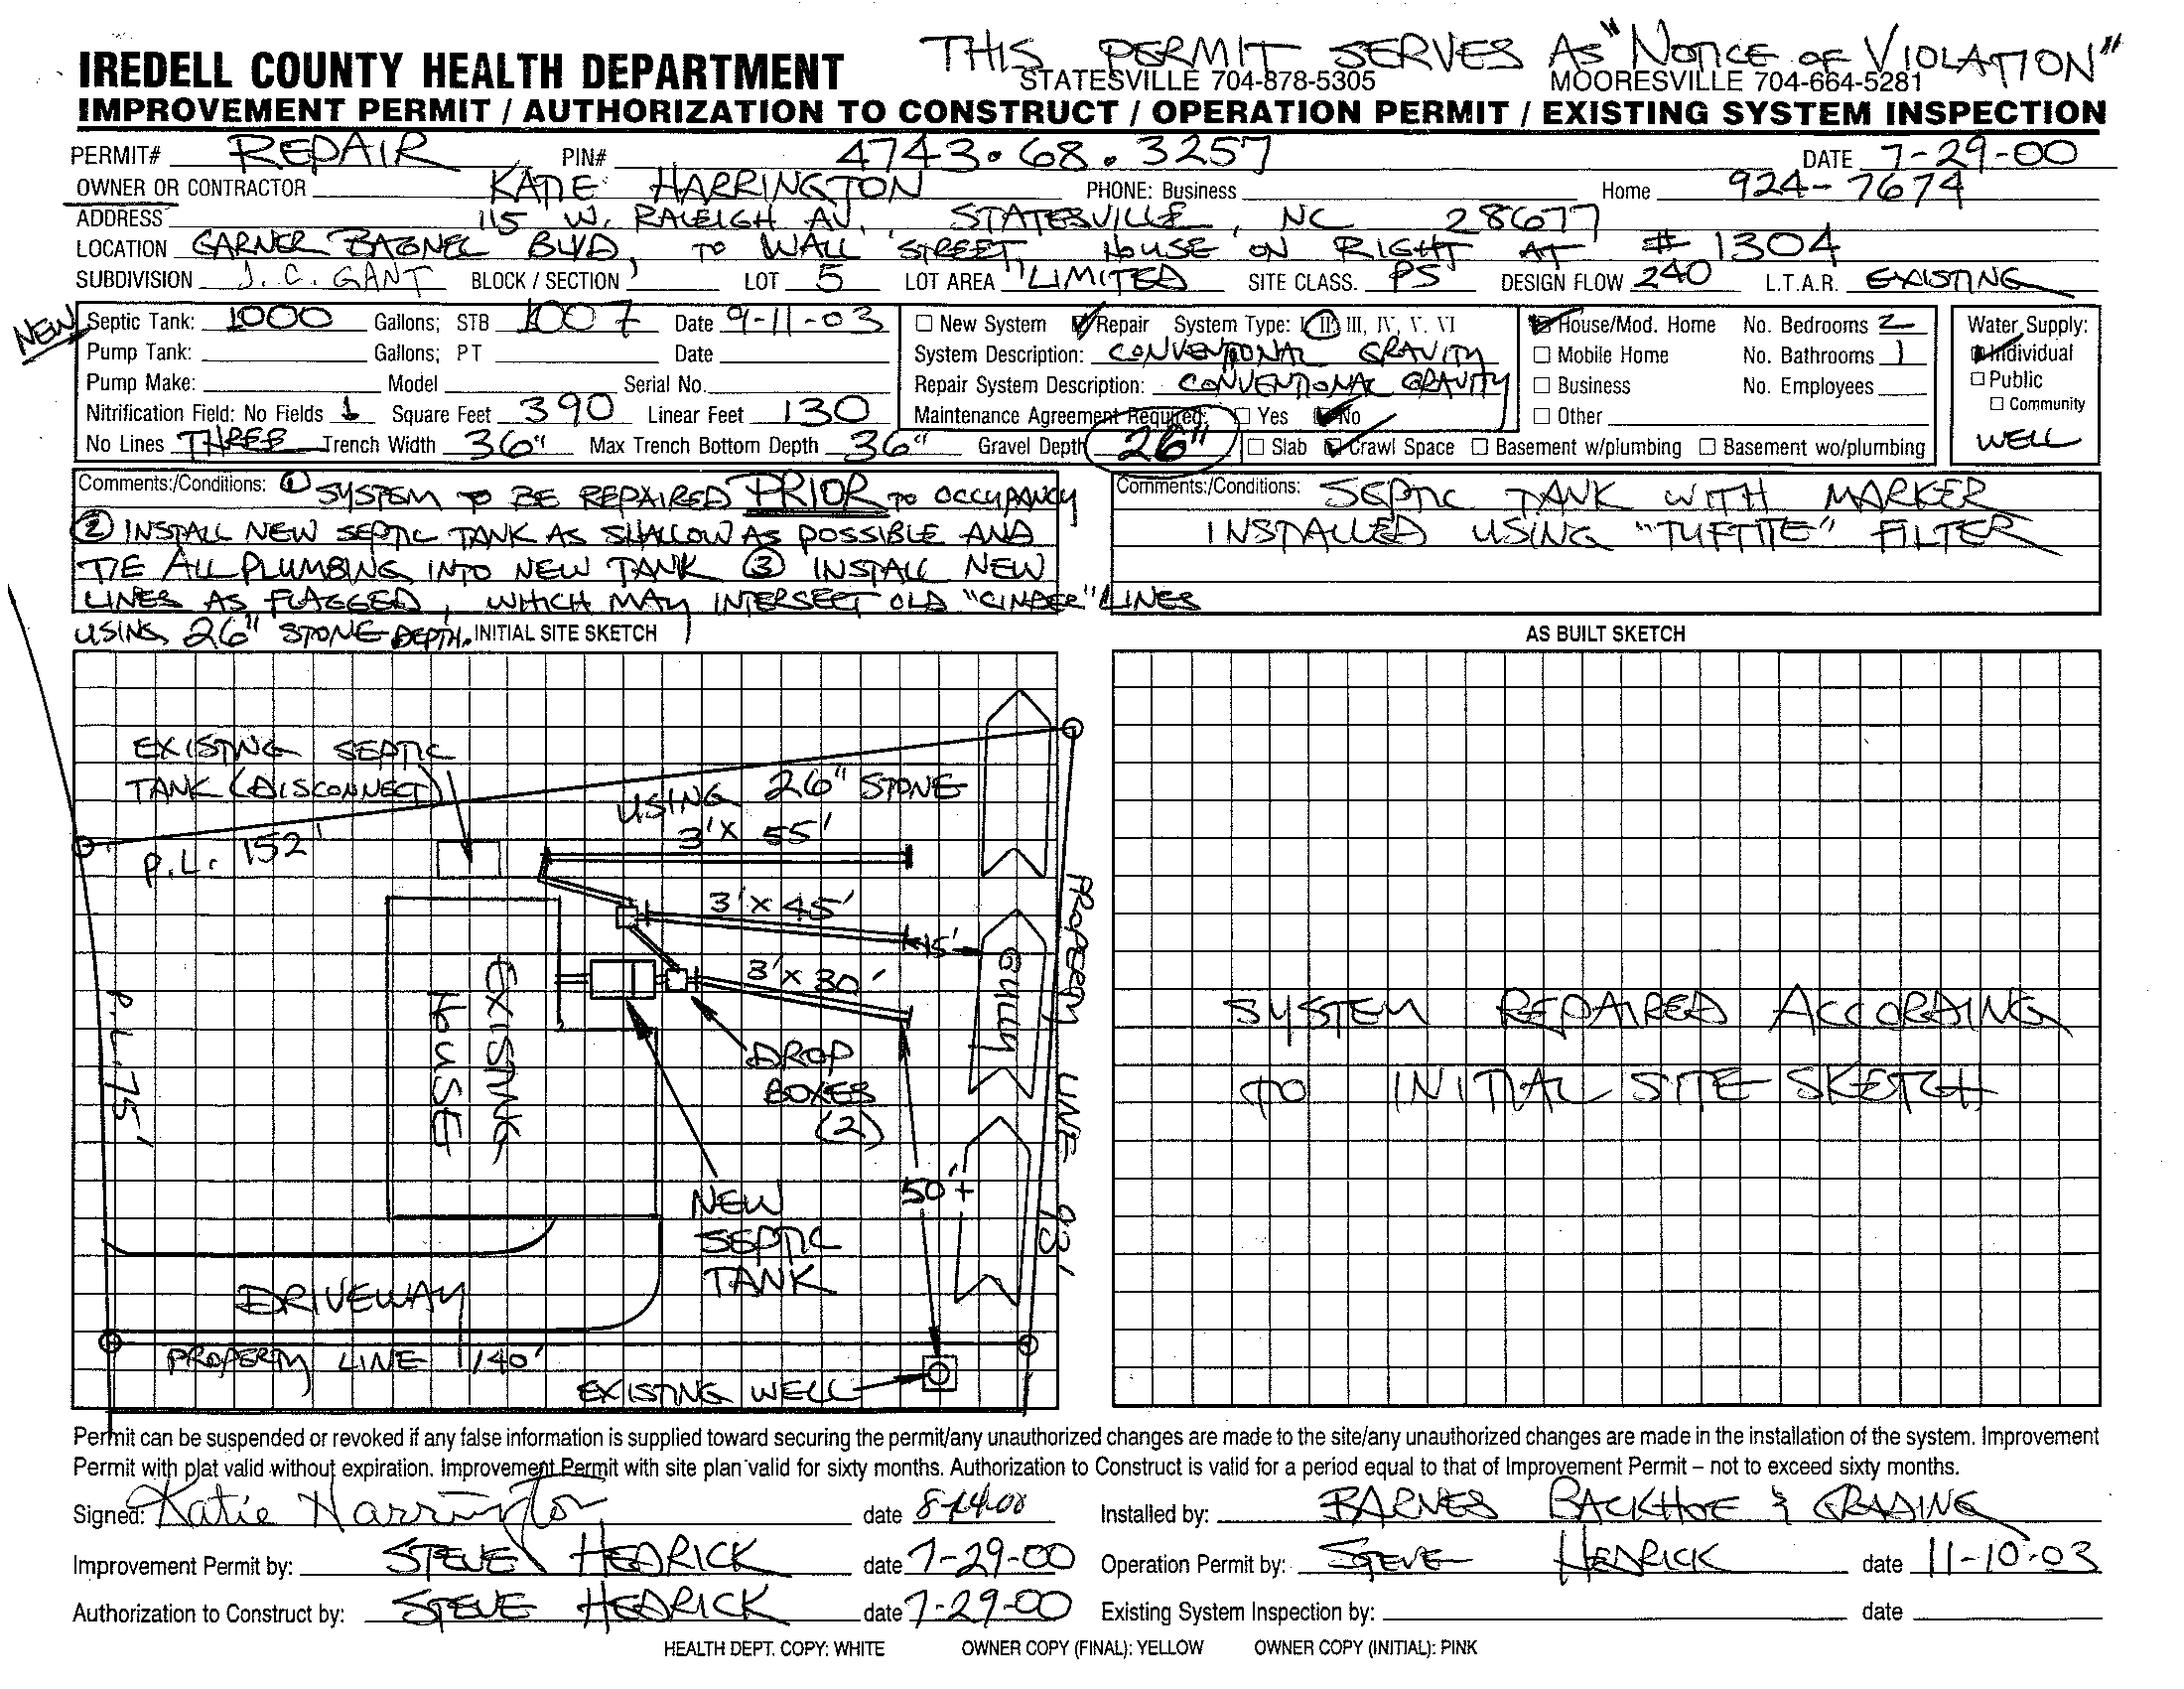 THIS PERMIT SERVES AS "NOTICE OF VIOLATION"
IREDELL COUNTY HEALTH DEPARTMENT STATESVILLE 704-878-5305 MOORESVILLE 704-664-5281
IMPROVEMENT PERMIT / AUTHORIZATION TO CONSTRUCT / OPERATION PERMIT / EXISTING SYSTEM INSPECTION
PERMIT# REPAIR PIN# 4743.68.3257 DATE 7-29-00
OWNER OR CONTRACTOR KATIE HARRINGTON PHONE: Business Home 924-7674
ADDRESS 115 W. RALEIGH AV. STATESVILLE, NC 28677
LOCATION GARNER BAGNEL BLVD, TO WALL STREET, HOUSE ON RIGHT AT # 1304
SUBDIVISION J. C. GANT BLOCK / SECTION LOT 5 LOT AREA "LIMITED SITE CLASS. PS DESIGN FLOW 240 L.T.A.R. EXISTING
NEW
Septic Tank: 1000 Gallons; STB 1007 Date 9-11-03
Pump Tank: Gallons; PT Date
Pump Make: Model Serial No.
Nitrification Field: No Fields 1 Square Feet 390 Linear Feet 130
No Lines THREE Trench Width 36" Max Trench Bottom Depth 36" Gravel Depth 26"
New System Repair System Type: I II, III, IV, V. VI
System Description: CONVENTIONAL GRAVITY
Repair System Description: CONVENTIONAL GRAVITY
Maintenance Agreement Required: Yes No
Slab Crawl Space Basement w/plumbing Basement wo/plumbing
House/Mod. Home No. Bedrooms 2
Mobile Home No. Bathrooms 1
Business No. Employees
Other
Water Supply:
Individual
Public
Community
WELL
Comments:/Conditions: ① SYSTEM TO BE REPAIRED PRIOR TO OCCUPANCY
② INSTALL NEW SEPTIC TANK AS SHALLOW AS POSSIBLE AND
TIE ALL PLUMBING INTO NEW TANK ③ INSTALL NEW
LINES AS FLAGGED, WHICH MAY INTERSECT OLD "CINDER" LINES
USING 26" STONE DEPTH.
Comments:/Conditions: SEPTIC TANK WITH MARKER
INSTALLED USING "TUFTITE" FILTER
INITIAL SITE SKETCH
EXISTING SEPTIC
TANK (DISCONNECT)
USING 26" STONE
3' X 55'
P.L. 152'
3' X 45'
15'
3' X 30'
GULLY
PROPERTY LINE 93'
P.L. 75'
EXISTING
HOUSE
DROP
BOXES
(2)
50'+
NEW
SEPTIC
TANK
DRIVEWAY
PROPERTY LINE 140'
EXISTING WELL
AS BUILT SKETCH
SYSTEM REPAIRED ACCORDING
TO INITIAL SITE SKETCH
Permit can be suspended or revoked if any false information is supplied toward securing the permit/any unauthorized changes are made to the site/any unauthorized changes are made in the installation of the system. Improvement
Permit with plat valid without expiration. Improvement Permit with site plan valid for sixty months. Authorization to Construct is valid for a period equal to that of Improvement Permit – not to exceed sixty months.
Signed: Katie Harrington date 8-14-00 Installed by: BARNES BACKHOE & GRADING
Improvement Permit by: STEVE HEDRICK date 7-29-00 Operation Permit by: STEVE HEDRICK date 11-10-03
Authorization to Construct by: STEVE HEDRICK date 7-29-00 Existing System Inspection by: date
HEALTH DEPT. COPY: WHITE OWNER COPY (FINAL): YELLOW OWNER COPY (INITIAL): PINK